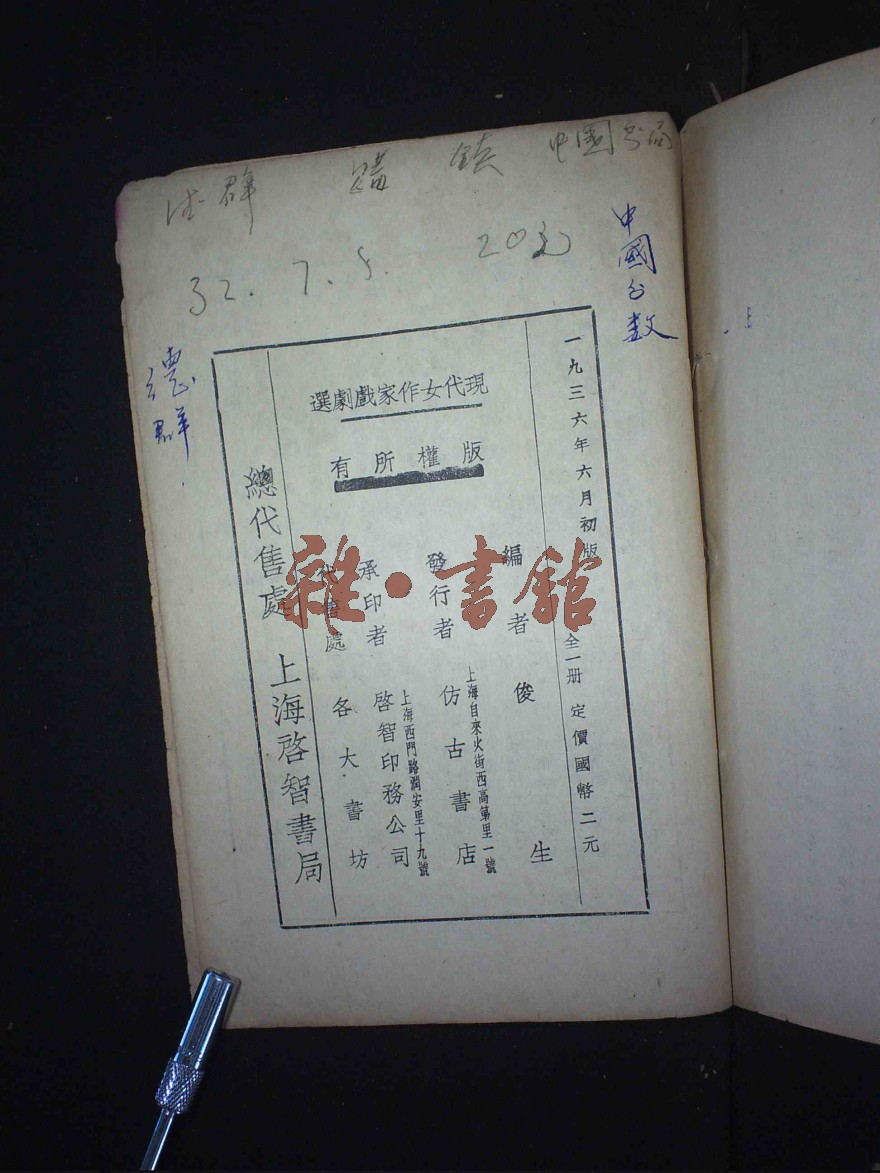 德群 購 鎮 中國書局
32.7.8. 20元
中國
德群
一九三六年六月初版 全一册 定價國幣二元
現代女作家戲劇選
版權所有
編者 俊生
發行者 仿古書店
上海自來火街西高第里一號
承印者 啓智印務公司
上海西門路潤安里十九號
代售處 各大書坊
總代售處 上海啓智書局
雜·書館